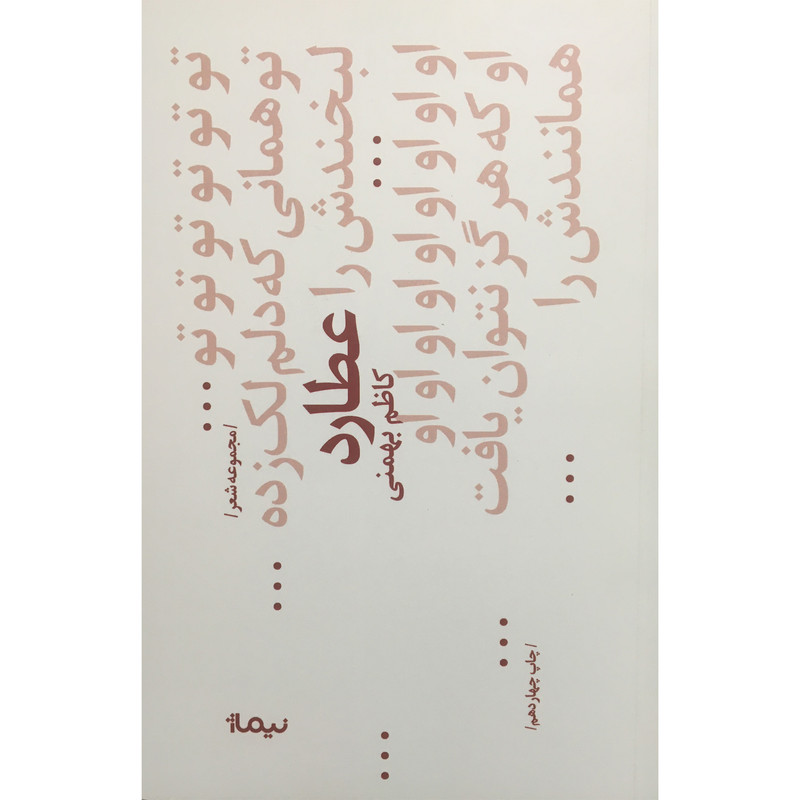 تو تو تو تو تو تو ...
/ مجموعه شعر /
تو همانی که دلم لک زده ...
لبخندش را
عطارد
...
کاظم بهمنی
او او او او او او او او
...
او که هرگز نتوان یافت ...
همانندش را ...
/ چاپ چهاردهم /
نیماژ